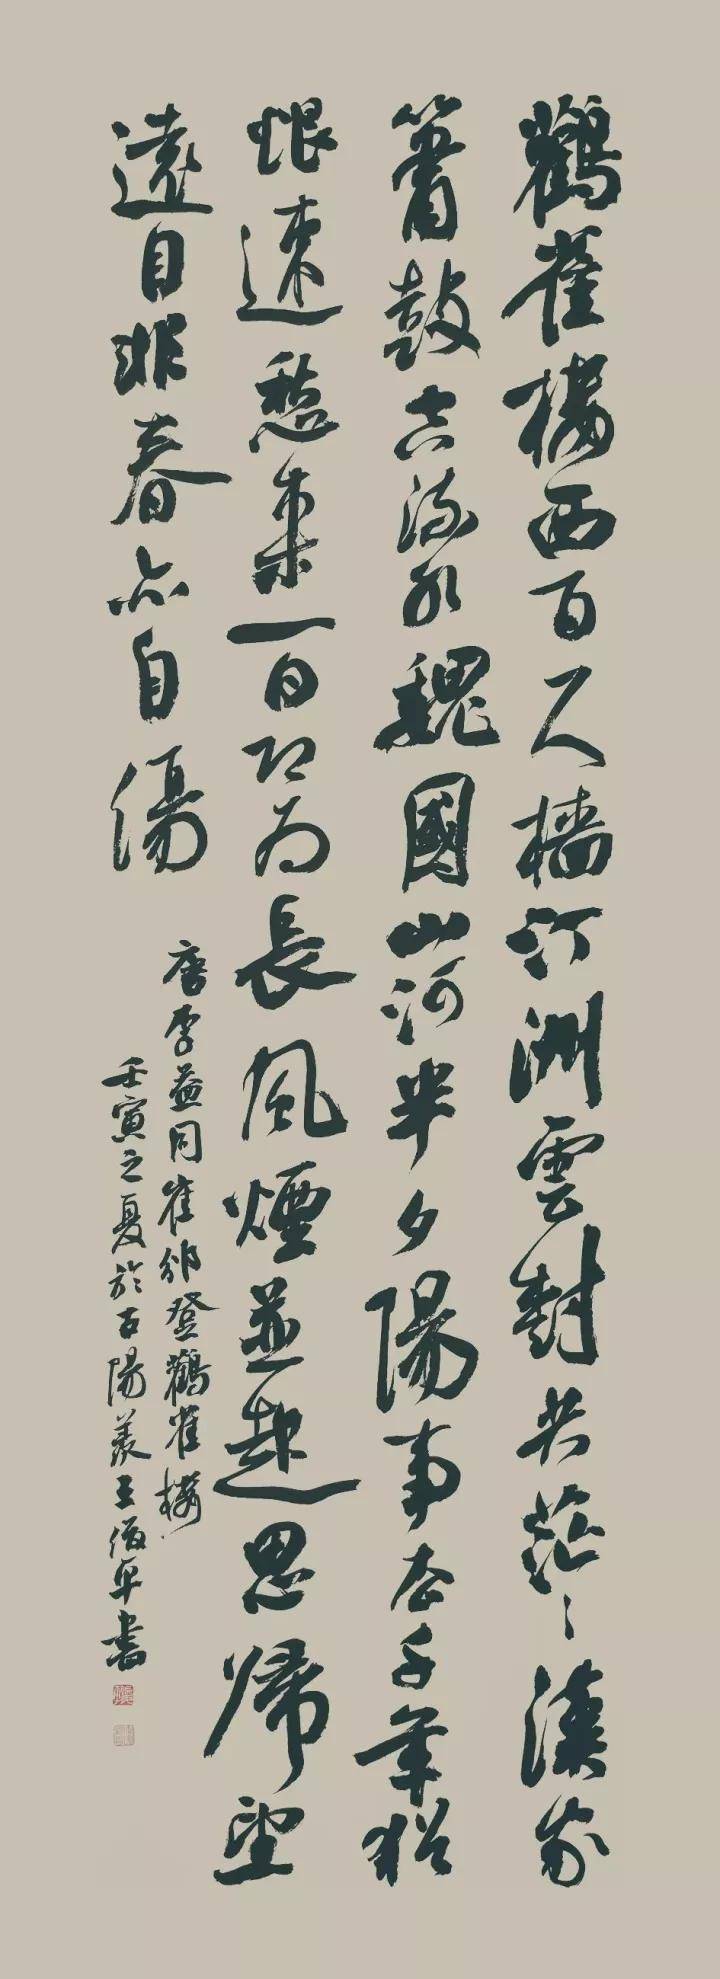 鸛雀樓西百尺檣汀洲雲對共茫〻漢家
簫鼓空流水魏國山河半夕陽事去千年猶
恨速愁來一日即為長風煙並起思歸望
遠目非春亦自傷
唐李益同崔邠登鸛雀樓
壬寅之夏於古陽羨王俊平書